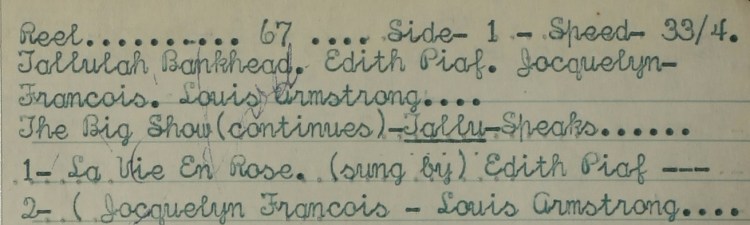 Reel.......... 67 .... Side- 1 - Speed- 33/4.
Tallulah Bankhead. Edith Piaf. Jocquelyn-
Francois. Louis Armstrong....
The Big Show (continues)-Tallu-Speaks......
1- La Vie En Rose. (sung by) Edith Piaf ---
2- ( Jocquelyn Francois - Louis Armstrong....